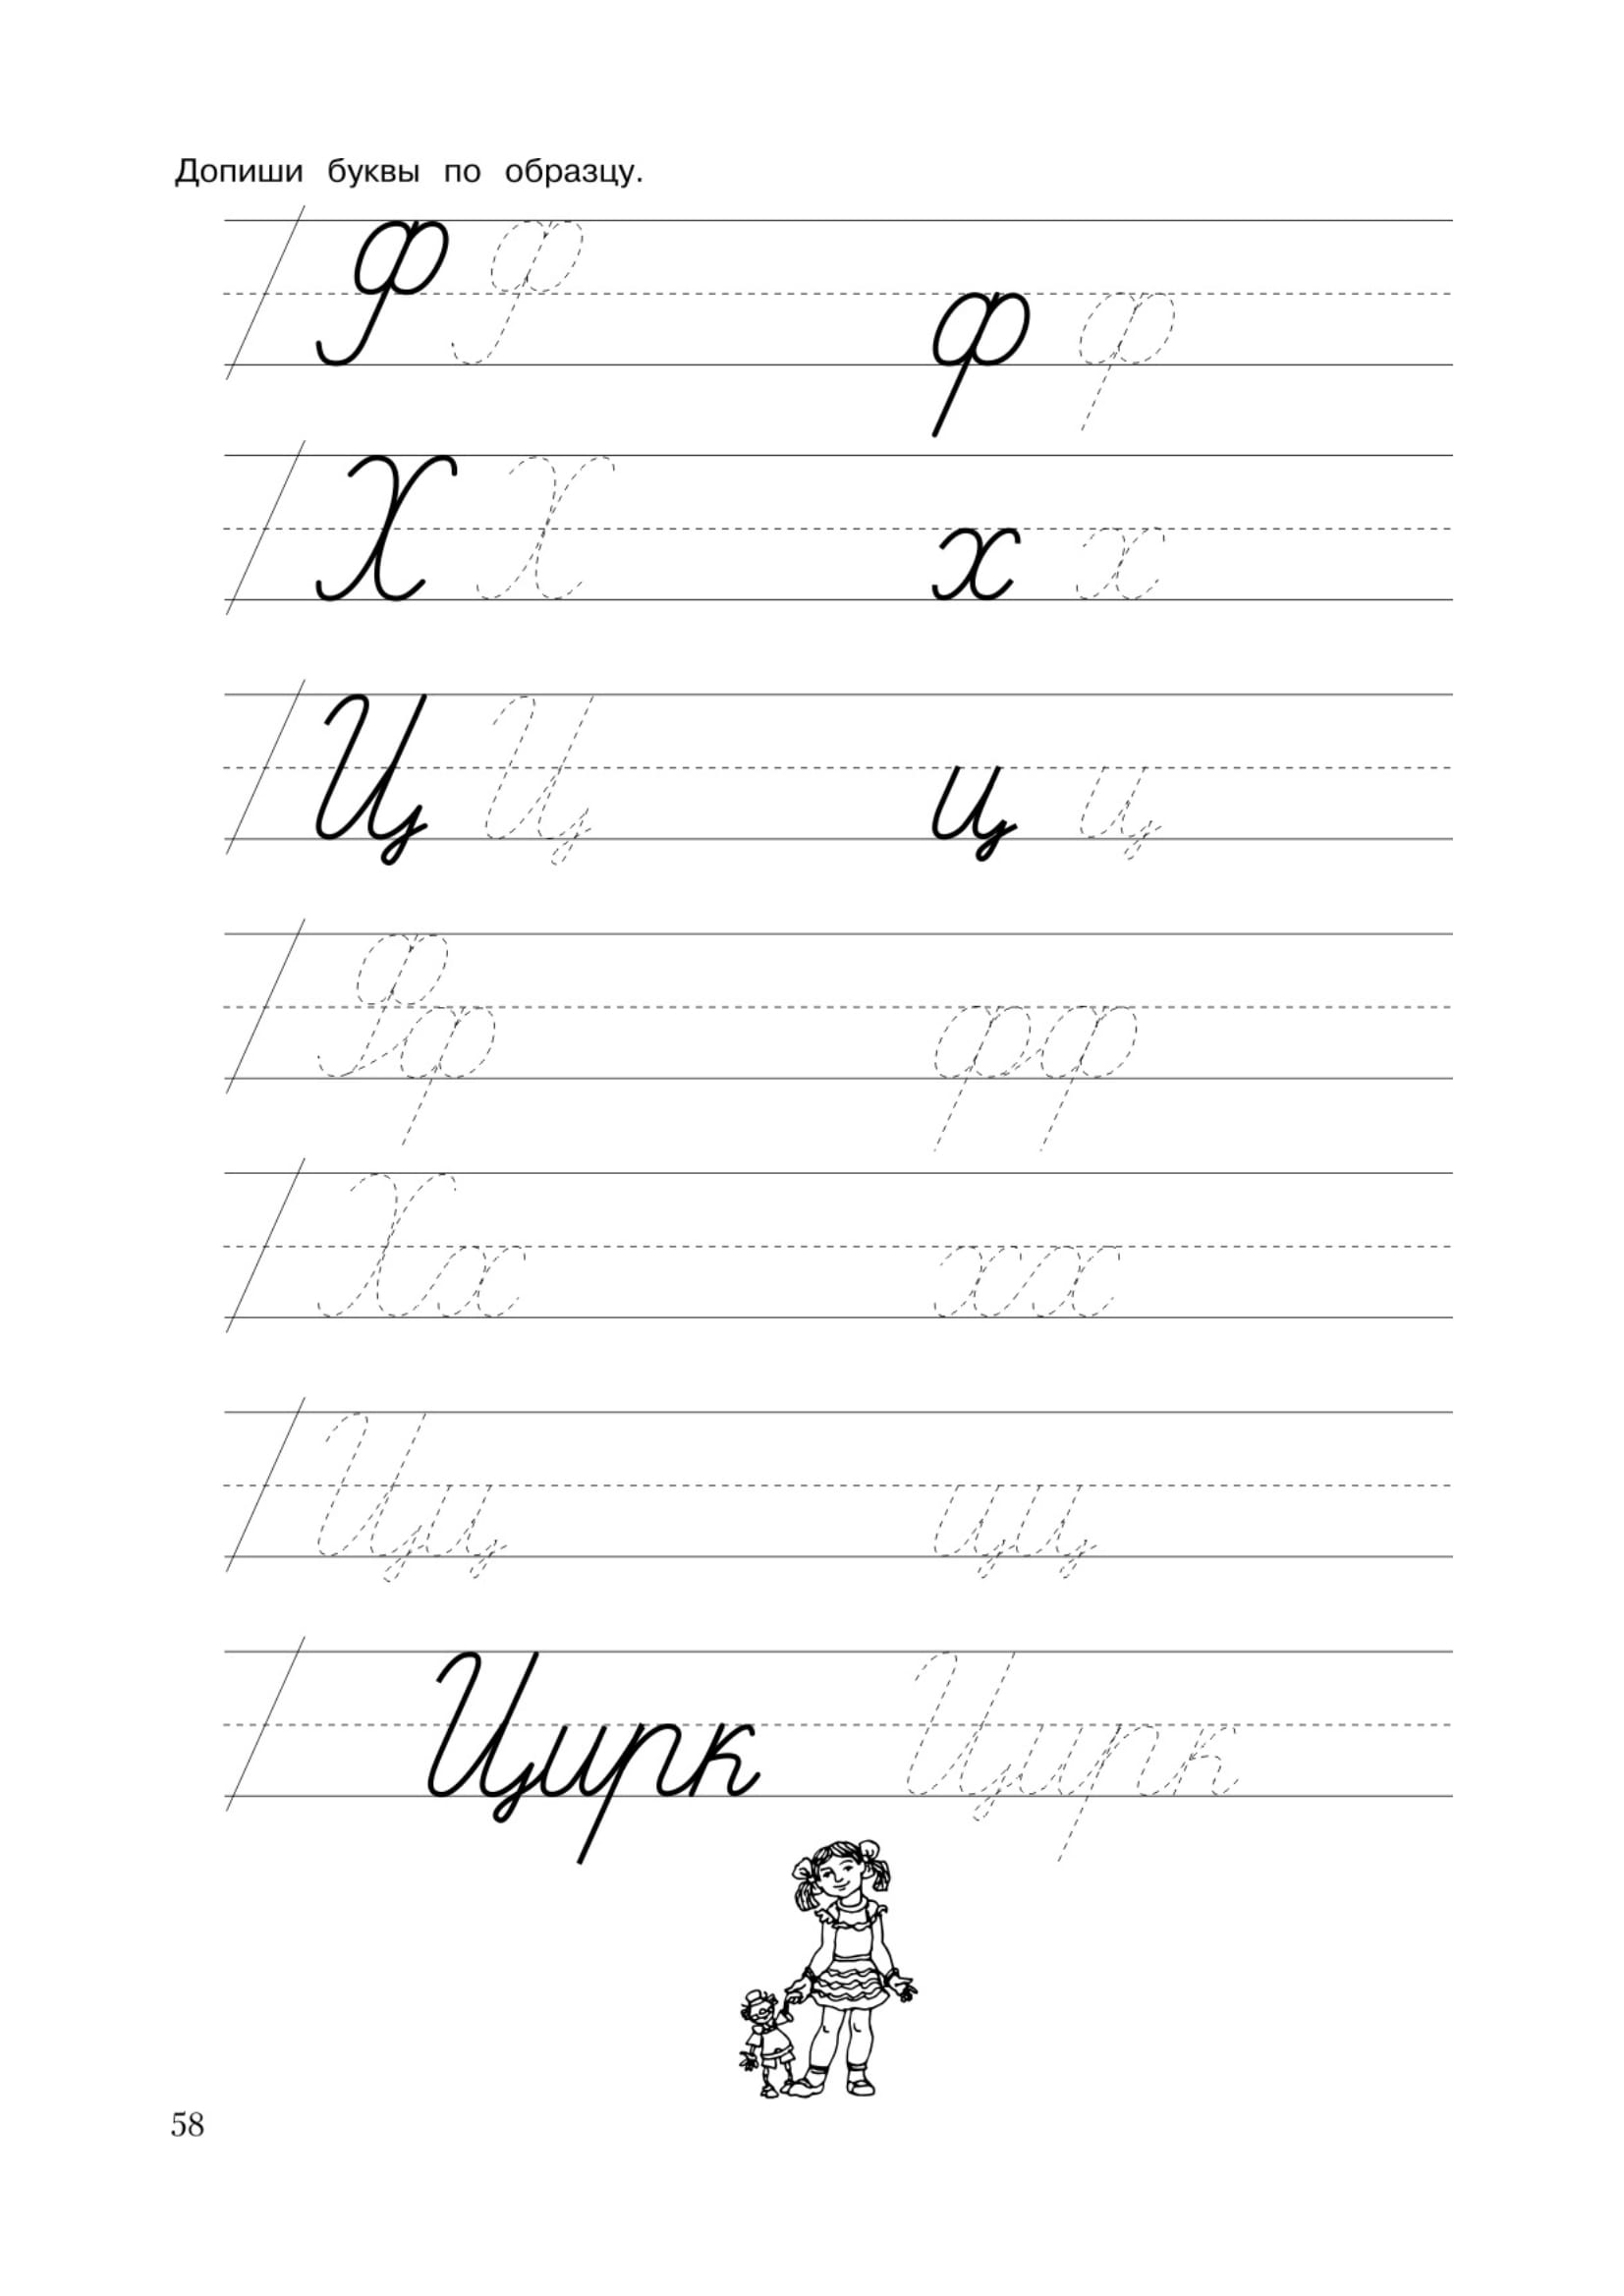 Допиши буквы по образцу.
Ф Ф ф ф
Х Х х х
Ц Ц ц ц
Фф фф
Хх хх
Цц цц
Цирк Цирк
58